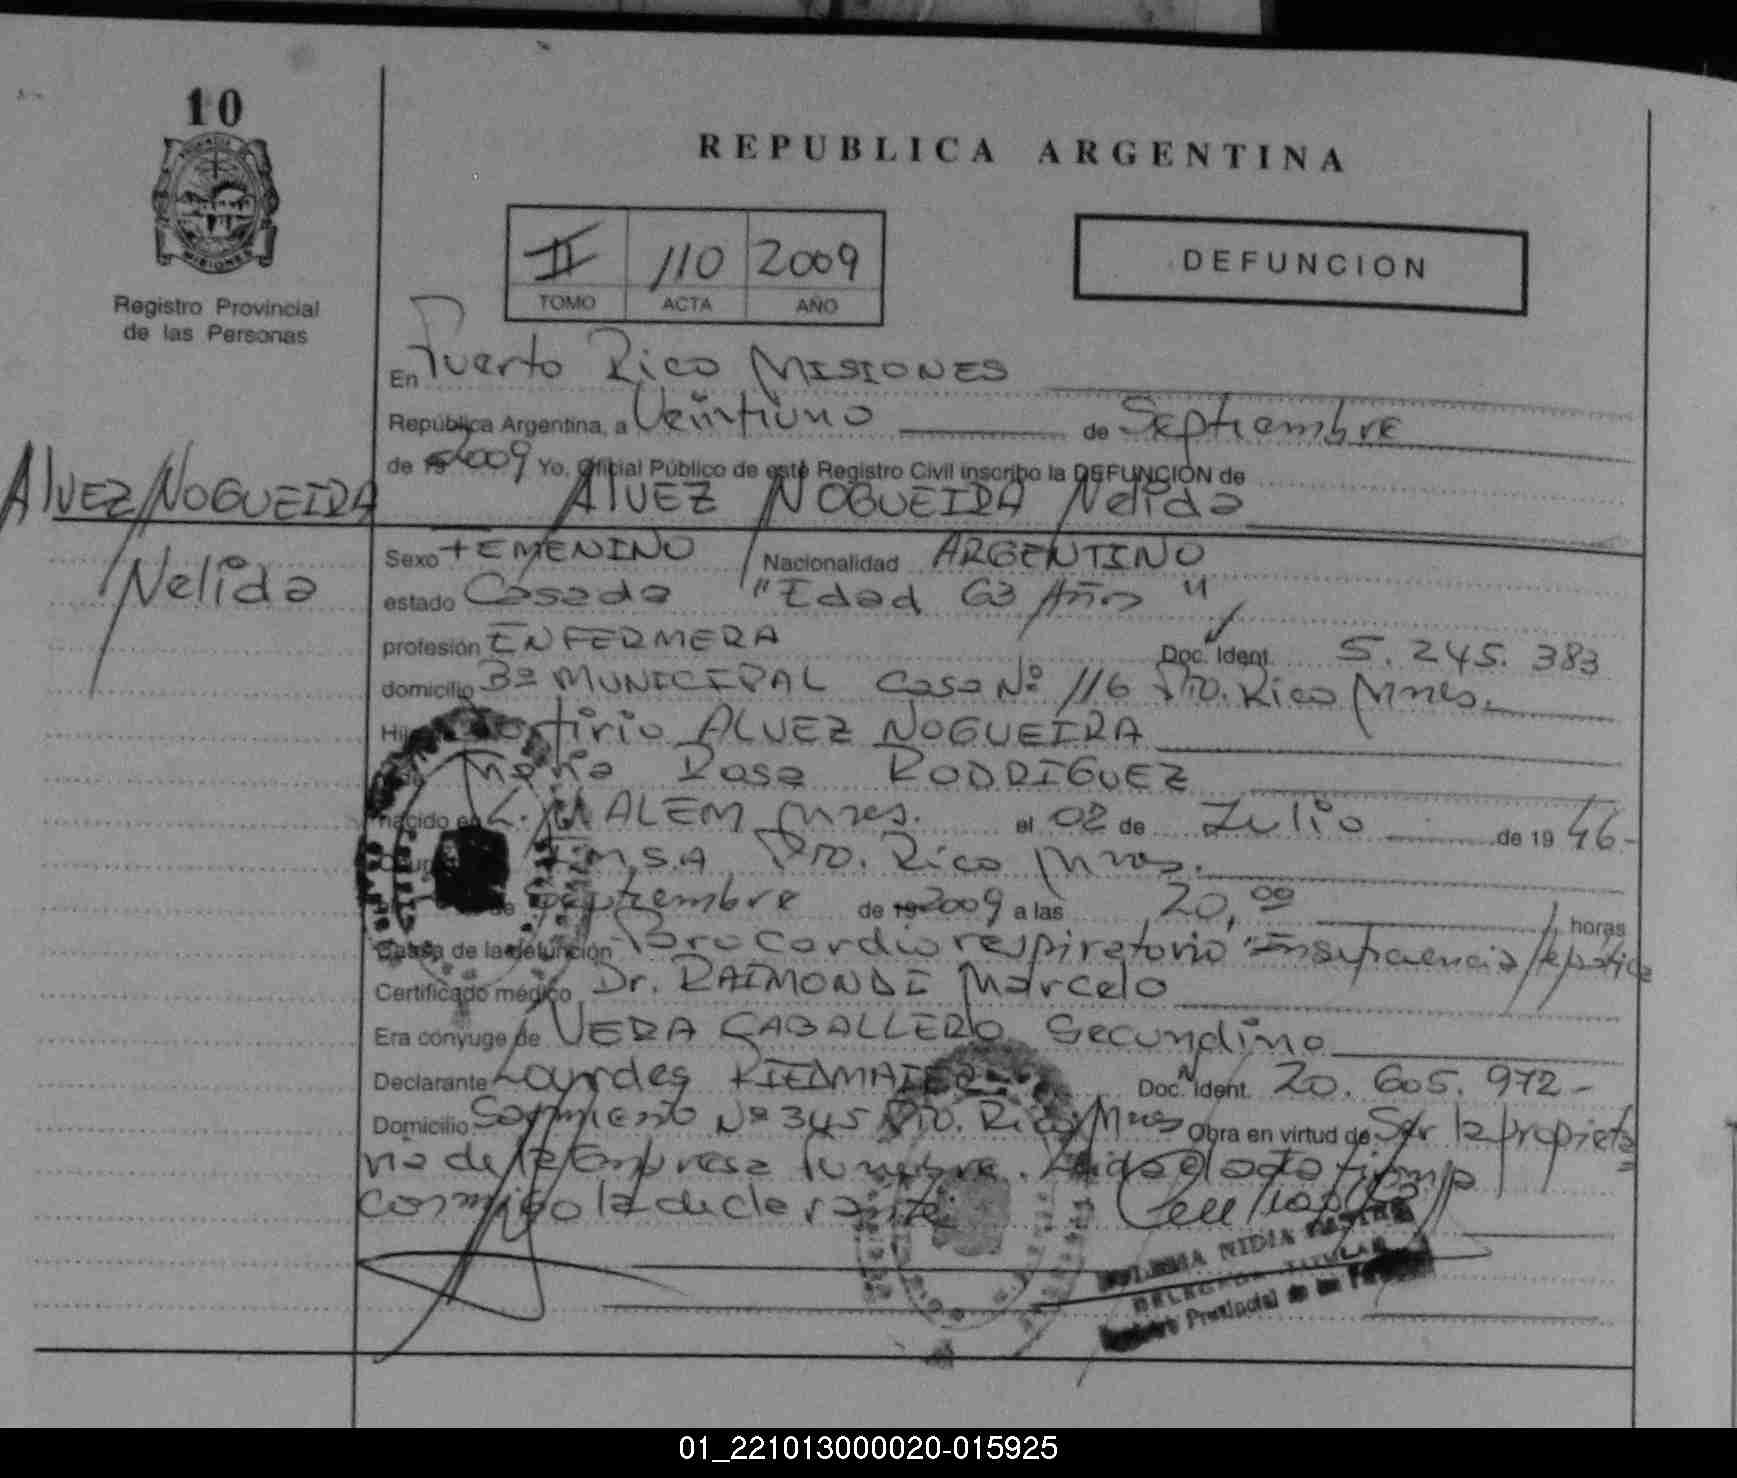 10
MISIONES
Registro Provincial
de las Personas
REPUBLICA ARGENTINA
II 110 2009
TOMO ACTA AÑO
DEFUNCION
En Puerto Rico MISIONES
República Argentina, a Veintiuno de Septiembre
de 19 2009 Yo, Oficial Público de este Registro Civil inscribo la DEFUNCION de
ALVEZ NOGUEIRA Nelida
ALVEZ NOGUEIRA
Nelida
Sexo FEMENINO Nacionalidad ARGENTINO
estado Casada "Edad 63 Años"
profesión ENFERMERA Doc. Ident. 5.245.383
domicilio Bº MUNICIPAL Casa Nº 116 Pto. Rico Mnes.
ALVEZ NOGUEIRA
Maria Rosa RODRIGUEZ
nacido en L. N ALEM Mnes. el 02 de Julio de 19 46.-
Pto. Rico Mnes.
de Septiembre de 19 2009 a las 20,00 horas
Causa de la defunción Paro Cardio respiratorio Insuficiencia Hepatica
Certificado médico Dr. RAIMONDI Marcelo
Era cónyuge de VERA CABALLERO Secundino
Declarante Lourdes Doc. Ident. 20.605.972-
Domicilio Sarmiento Nº 345 Pto. Rico Mnes Obra en virtud de Ser la propieta
ria de la Empresa Funebre. Leida el acta firma
conmigo la declarante
NIDIA
Provincial de las
01_221013000020-015925